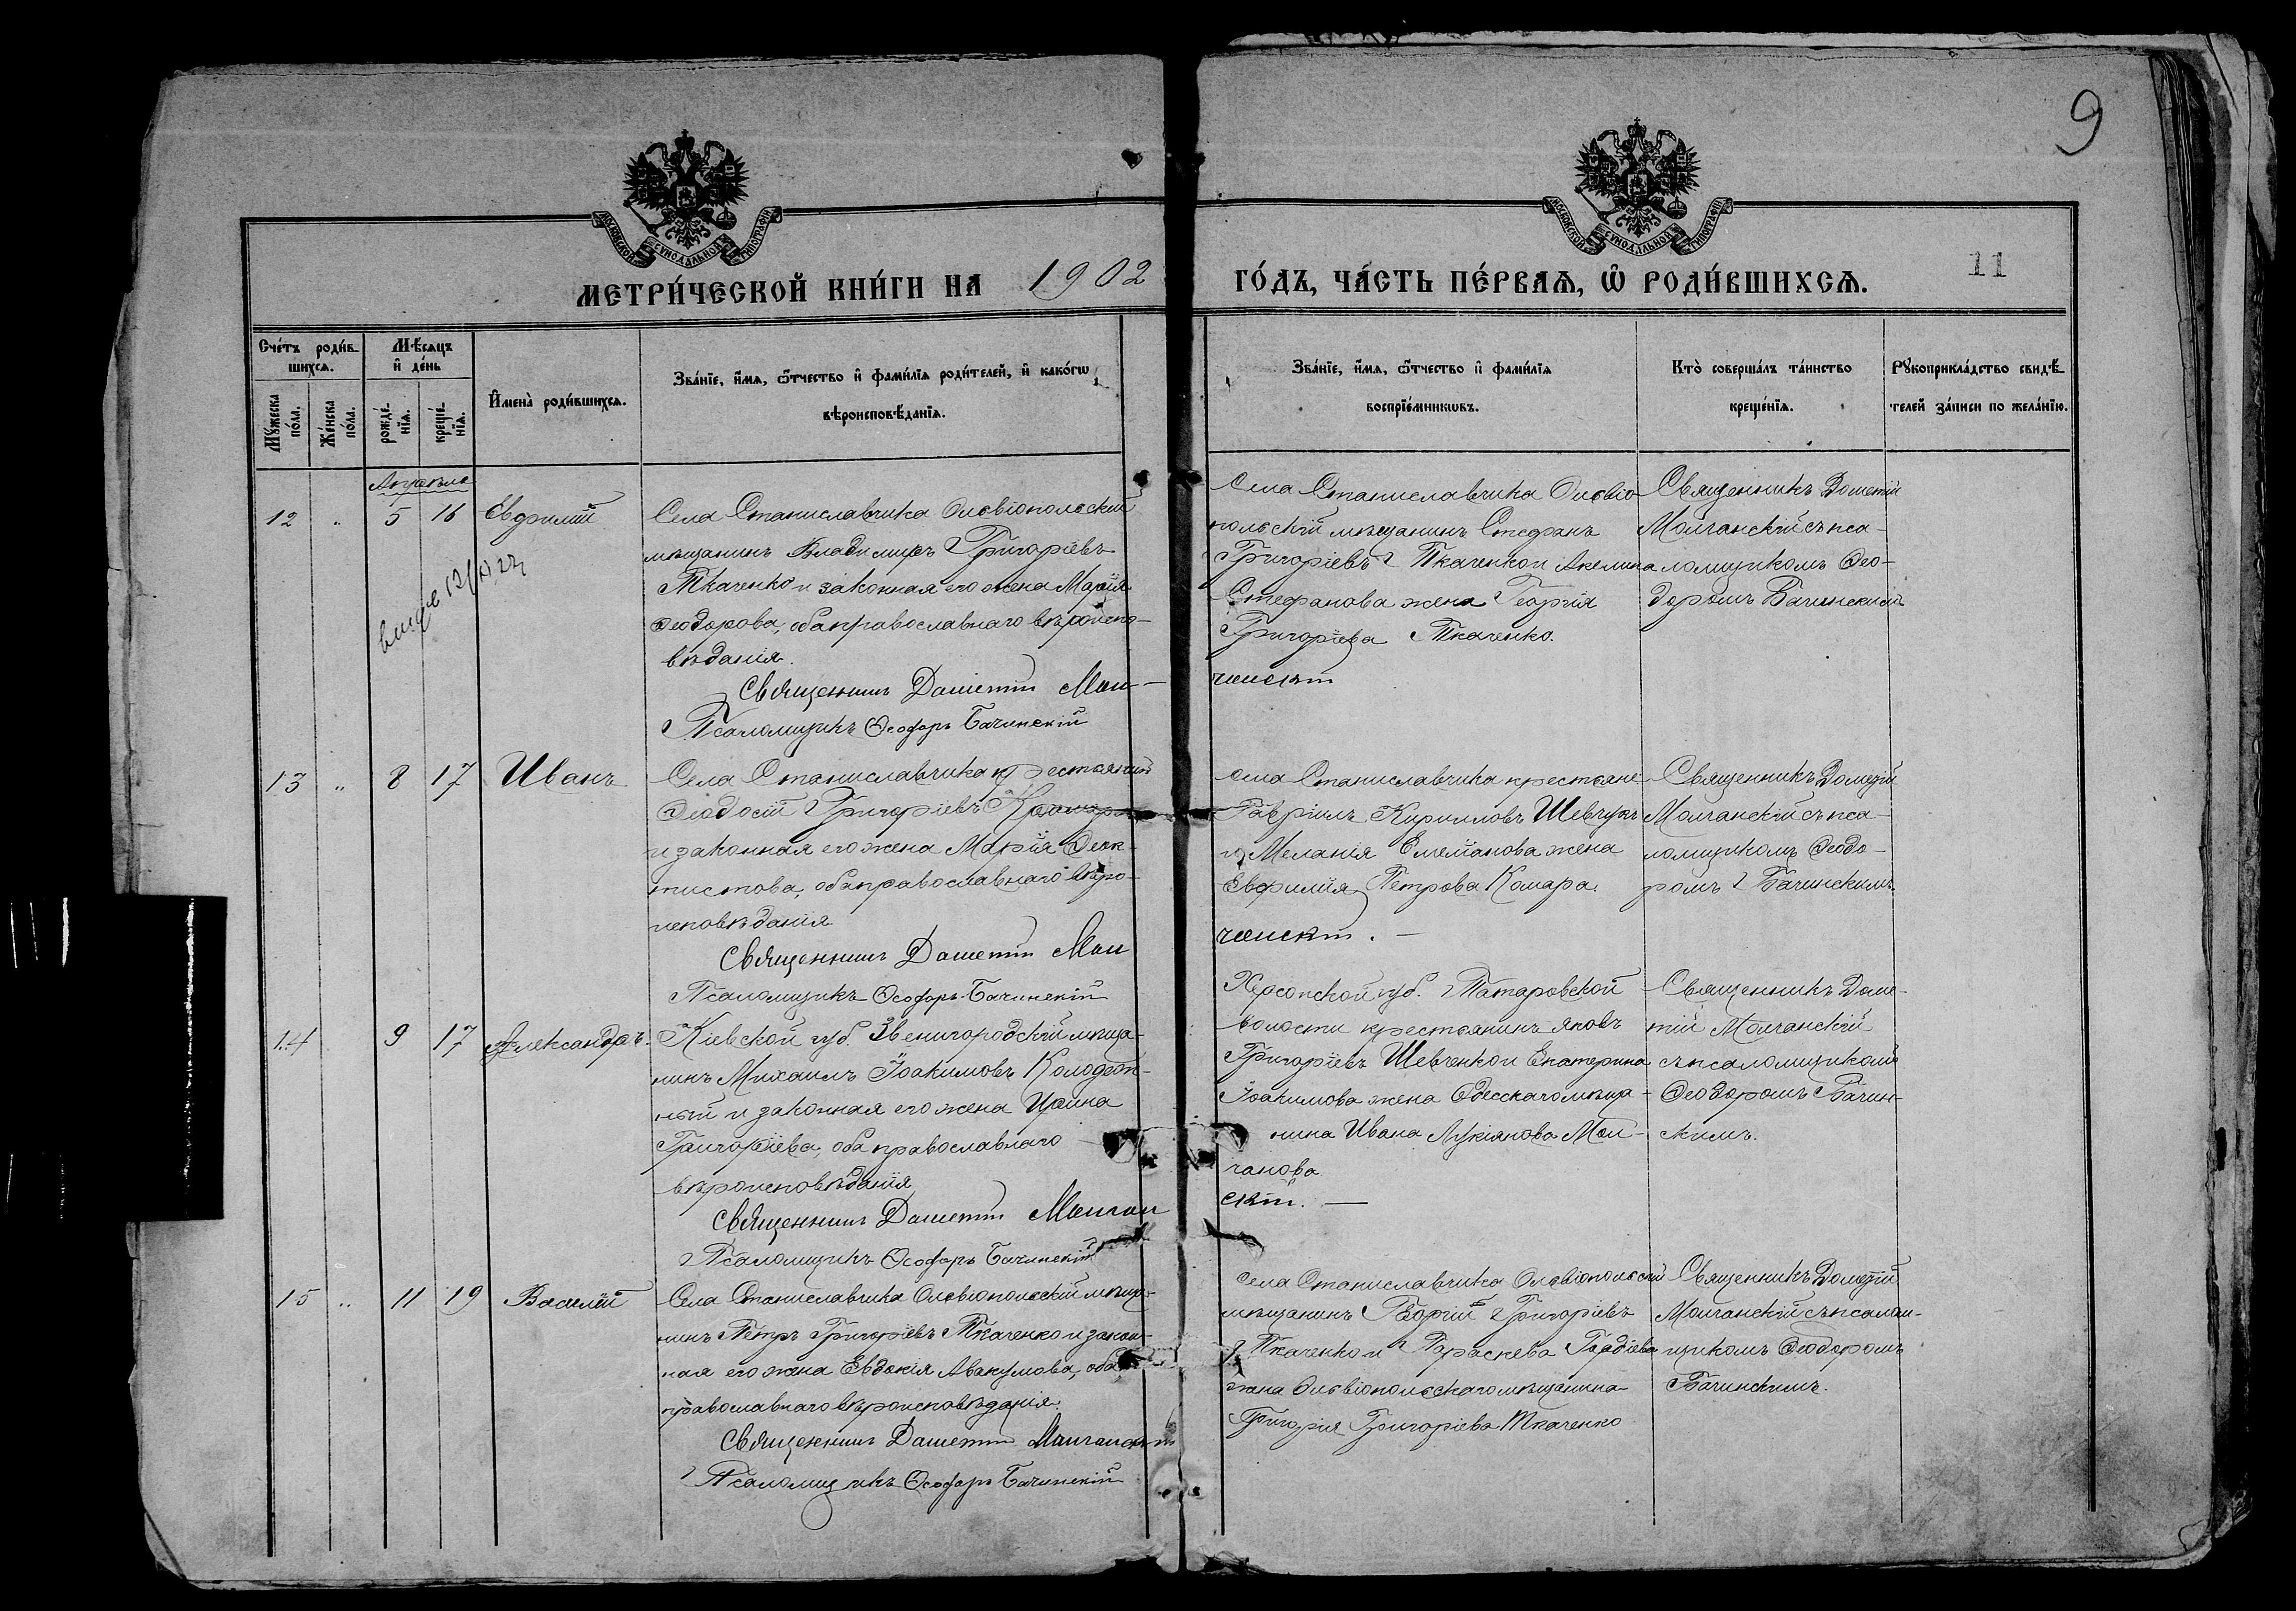 9
МОСКОВСКОЙ СУНОДАЛЬНОЙ ТИПОГРАФІИ
МОСКОВСКОЙ СУНОДАЛЬНОЙ ТИПОГРАФІИ
МЕТРИ́ЧЕСКОЙ КНИ́ГИ НА 1902
ГО́ДЪ, ЧА́СТЬ ПЕ́РВАѦ, Ѡ҆ РОДИ́ВШИХСѦ.
11
Сче́тъ роди́в-
шихсѧ.
Мꙋ́жеска по́ла.
Же́нска по́ла.
Мѣ́сѧцъ
и҆ де́нь
рожде́-
нїѧ.
креще́-
нїѧ.
И҆мена̀ роди́вшихсѧ.
Зва́нїе, и҆́мѧ, ѻ҆́тчество и҆ фами́лїѧ роди́телей, и҆ како́гѡ
вѣроисповѣ́данїѧ.
Зва́нїе, и҆́мѧ, ѻ҆́тчество и҆ фами́лїѧ
воспрїе́мникѡвъ.
Кто̀ соверша́лъ та́инство
креще́нїѧ.
Рꙋкоприкла́дство свидѣ́-
телей за́писи по жела́нїю.
Апрѣль
12 " 5 16 Евфимій
Села Станиславчика Ольвіопольскій
мѣщанинъ Владимиръ Григоріевъ
Ткаченко и законная его жена Марія
Ѳеодорова, оба православнаго вѣроиспо-
вѣданія.
Священникъ Дометій Мол-
Псаломщикъ Ѳеодоръ Бачинскій
Села Станиславчика Ольвіо-
польскій мѣщанинъ Стефанъ
Григоріевъ Ткаченко и Акелина
Стефанова жена Георгія
Григоріева Ткаченко.
чанскій
Священникъ Дометій
Молчанскій съ пса-
ломщикомъ Ѳео-
доромъ Бачинскимъ
13 " 8 17 Иванъ
Села Станиславчика крестьянинъ
Ѳеодосій Григоріевъ
и законная его жена Марія Ѳеок-
тистова, оба православнаго вѣро-
исповѣданія
Священникъ Дометій Мол
Псаломщикъ Ѳеодоръ Бачинскій
Села Станиславчика крестьяне
Гавріилъ Кирилловъ Шевчукъ
и Меланія Емеліанова жена
Евфимія Петрова Комара.
чанскій. —
Священникъ Дометій
Молчанскій съ пса-
ломщикомъ Ѳеодо-
ромъ Бачинскимъ.
14 9 17 Александръ.
Кіевской губ. Звенигородскій мѣща-
нинъ Михаилъ Іоакимовъ Колодеж-
ный и законная его жена Ирина
Григоріева, оба православнаго
вѣроисповѣданія
Священникъ Дометій Молчан
Псаломщикъ Ѳеодоръ Бачинскій
Херсонской губ. Татаровской
волости крестьянинъ Яковъ
Григоріевъ Шевченко и Екатерина
Іоакимова жена Одесскаго мѣща-
нина Ивана Лукіанова Мол-
чанова
скій. —
Священникъ Доме-
тій Молчанскій
съ псаломщикомъ
Ѳеодоромъ Бачин-
скимъ.
15 " 11 19 Василій
Села Станиславчика Ольвіопольскій мѣща-
нинъ Петръ Григоріевъ Ткаченко и закон-
ная его жена Евдокія Авакумова, оба
православнаго вѣроисповѣданія.
Священникъ Дометій Молчанскій
Псаломщикъ Ѳеодоръ Бачинскій
Села Станиславчика Ольвіопольскій
мѣщанинъ Георгій Григоріевъ
Ткаченко и Параскева Гордіева
жена Ольвіопольскаго мѣщанина
Григорія Григоріева Ткаченко
Священникъ Дометій
Молчанскій съ псалом-
щикомъ Ѳеодоромъ
Бачинскимъ.